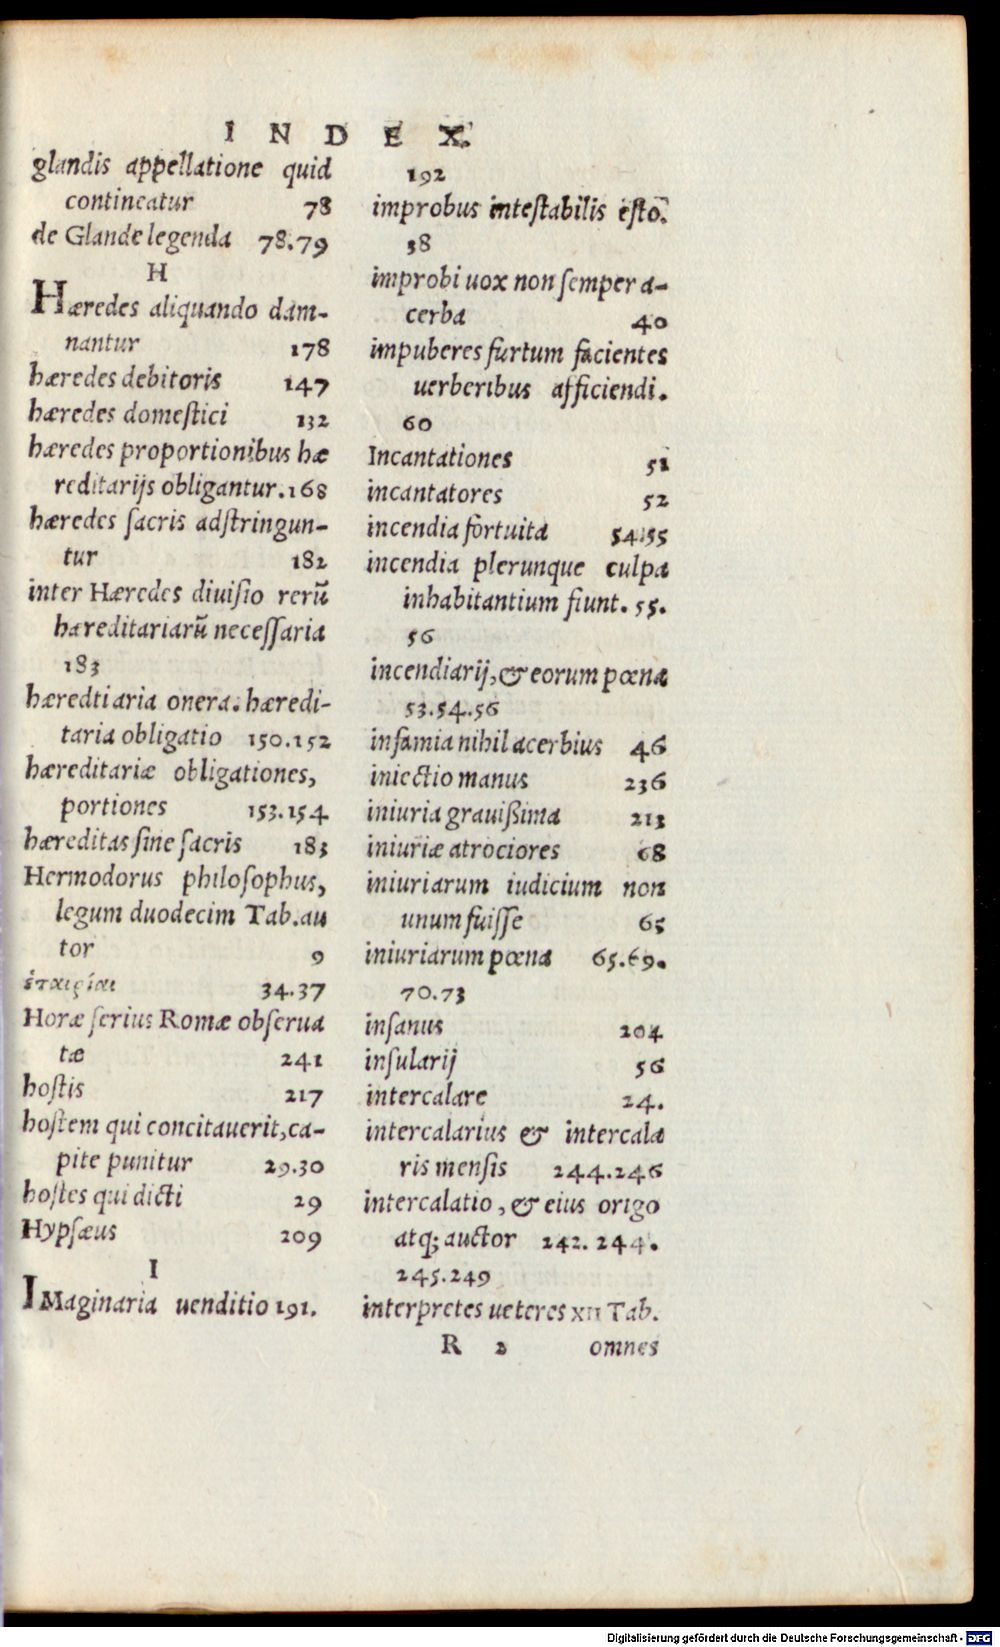 INDEX.
glandis appellatione quid
contineatur 78
de Glande legenda 78.79
H
Hæredes aliquando dam-
nantur 178
hæredes debitoris 147
hæredes domeſtici 132
hæredes proportionibus hæ
reditarijs obligantur. 168
hæredes ſacris adſtringun-
tur 182
inter Hæredes diuiſio rerū
hæreditariarū neceſſaria
183
hæredtiaria onera. hæredi-
taria obligatio 150.152
hæreditariæ obligationes,
portiones 153.154
hæreditas ſine ſacris 183
Hermodorus philoſophus,
legum duodecim Tab. au
tor 9
ἑταιρίαι 34.37
Horæ ſerius Romæ obſerua
tæ 241
hoſtis 217
hoſtem qui concitauerit, ca-
pite punitur 29.30
hoſtes qui dicti 29
Hypſæus 209
I
IMaginaria uenditio 191.
192
improbus inteſtabilis eſto.
38
improbi uox non ſemper a-
cerba 40
impuberes furtum facientes
uerberibus afficiendi.
60
Incantationes 51
incantatores 52
incendia fortuita 54.55
incendia plerunque culpa
inhabitantium fiunt. 55.
56
incendiarij, & eorum pœna
53.54.56
infamia nihil acerbius 46
iniectio manus 236
iniuria grauißima 213
iniuriæ atrociores 68
iniuriarum iudicium non
unum fuiſſe 65
iniuriarum pœna 65.69.
70.73
inſanus 204
inſularij 56
intercalare 24.
intercalarius & intercala
ris menſis 244.246
intercalatio, & eius origo
atq; auctor 242.244.
245.249
interpretes ueteres XII Tab.
R 2 omnes
Digitalisierung gefördert durch die Deutsche Forschungsgemeinschaft - DFG